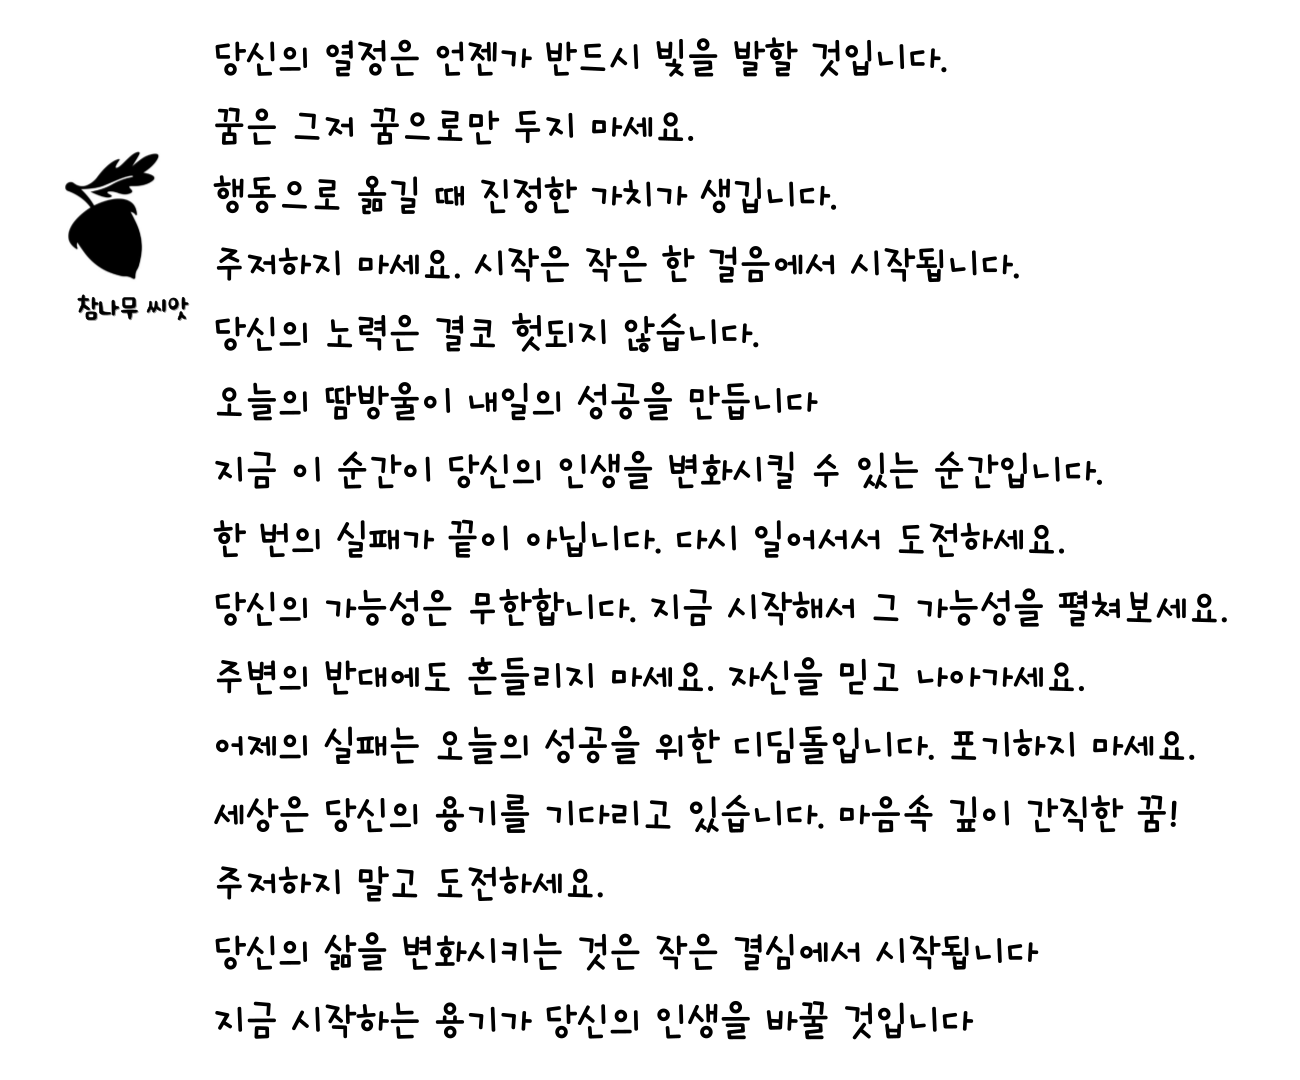 당신의 열정은 언젠가 반드시 빛을 발할 것입니다.
꿈은 그저 꿈으로만 두지 마세요.
행동으로 옮길 때 진정한 가치가 생깁니다.
주저하지 마세요. 시작은 작은 한 걸음에서 시작됩니다.
참나무 씨앗
당신의 노력은 결코 헛되지 않습니다.
오늘의 땀방울이 내일의 성공을 만듭니다
지금 이 순간이 당신의 인생을 변화시킬 수 있는 순간입니다.
한 번의 실패가 끝이 아닙니다. 다시 일어서서 도전하세요.
당신의 가능성은 무한합니다. 지금 시작해서 그 가능성을 펼쳐보세요.
주변의 반대에도 흔들리지 마세요. 자신을 믿고 나아가세요.
어제의 실패는 오늘의 성공을 위한 디딤돌입니다. 포기하지 마세요.
세상은 당신의 용기를 기다리고 있습니다. 마음속 깊이 간직한 꿈!
주저하지 말고 도전하세요.
당신의 삶을 변화시키는 것은 작은 결심에서 시작됩니다
지금 시작하는 용기가 당신의 인생을 바꿀 것입니다